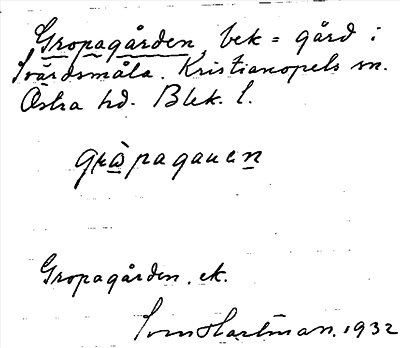 Gropagården, bek = gård i
Svärdsmåla. Kristianopels sn.
Östra hd. Blek. l.
Gropagården, ek.
Sven Hartman. 1932